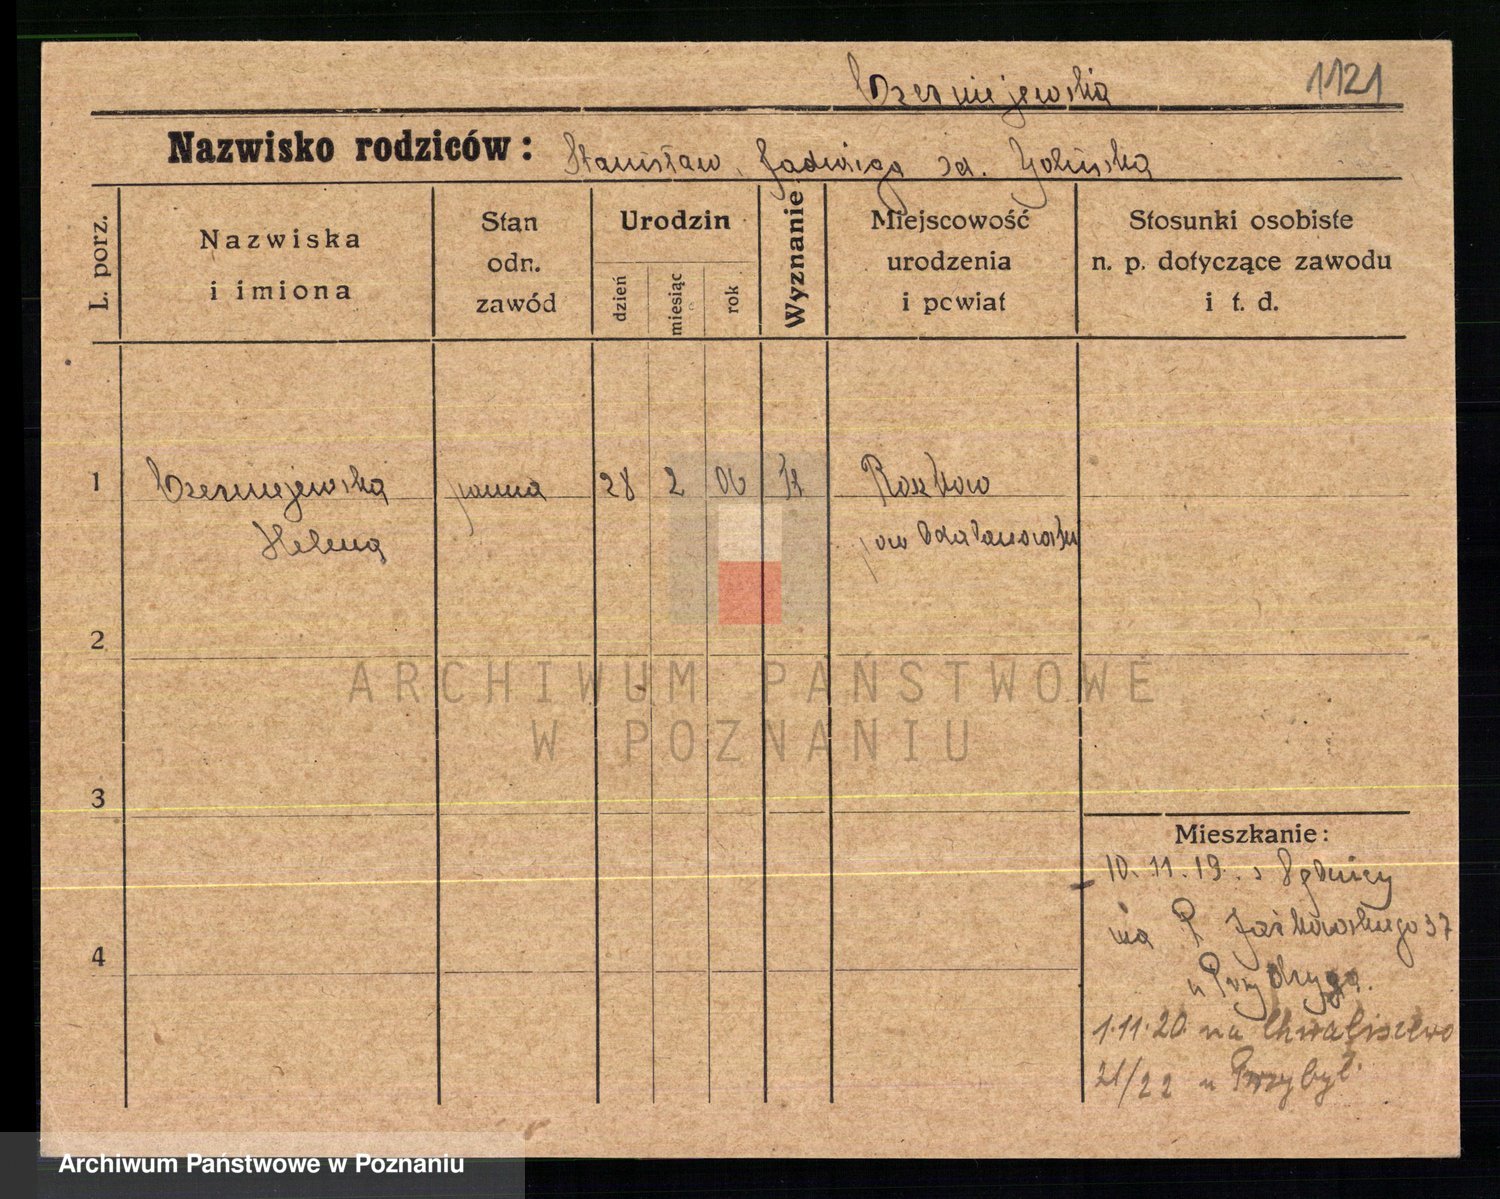 Czerniejewska 1121
Nazwisko rodziców: Stanisław, Jadwiga zd. Golińska
L. porz.
Nazwiska
i imiona
Stan
odn.
zawód
Urodzin
dzień
miesiąc
rok
Wyznanie
Miejscowość
urodzenia
i powiat
Stosunki osobiste
n. p. dotyczące zawodu
i t. d.
1 Czerniejewska panna 28 2 06 k Roszkow
Helena pow
2
ARCHIWUM PAŃSTWOWE
W POZNANIU
3
Mieszkanie:
10.11.19. z
na P Jaśkowskiego 37
u
4
1.11.20 na Chwaliszewo
21/22 u Przybył.
Archiwum Państwowe w Poznaniu